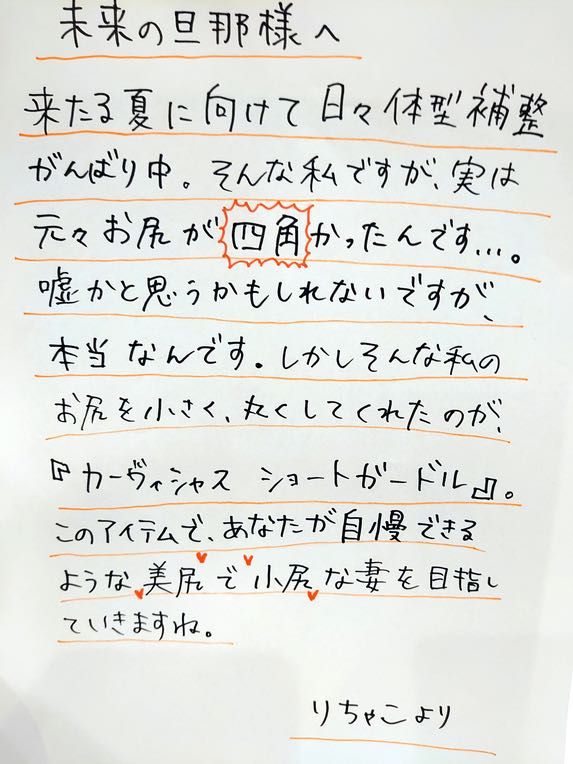 未来の旦那様へ
来たる夏に向けて日々体型補整
がんばり中。そんな私ですが、実は
元々お尻が四角かったんです...。
嘘かと思うかもしれないですが、
本当なんです。しかしそんな私の
お尻を小さく、丸くしてくれたのが、
『カーヴィシャス ショートガードル』。
このアイテムで、あなたが自慢できる
ような美尻で小尻な妻を目指し
ていきますね。
りちゃこより